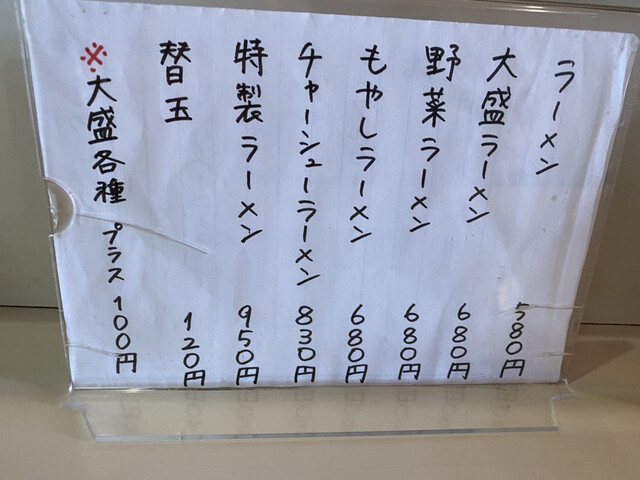 ラーメン 580円
大盛ラーメン 680円
野菜ラーメン 680円
もやしラーメン 680円
チャーシューラーメン 830円
特製ラーメン 950円
替玉 120円
※大盛各種 プラス100円